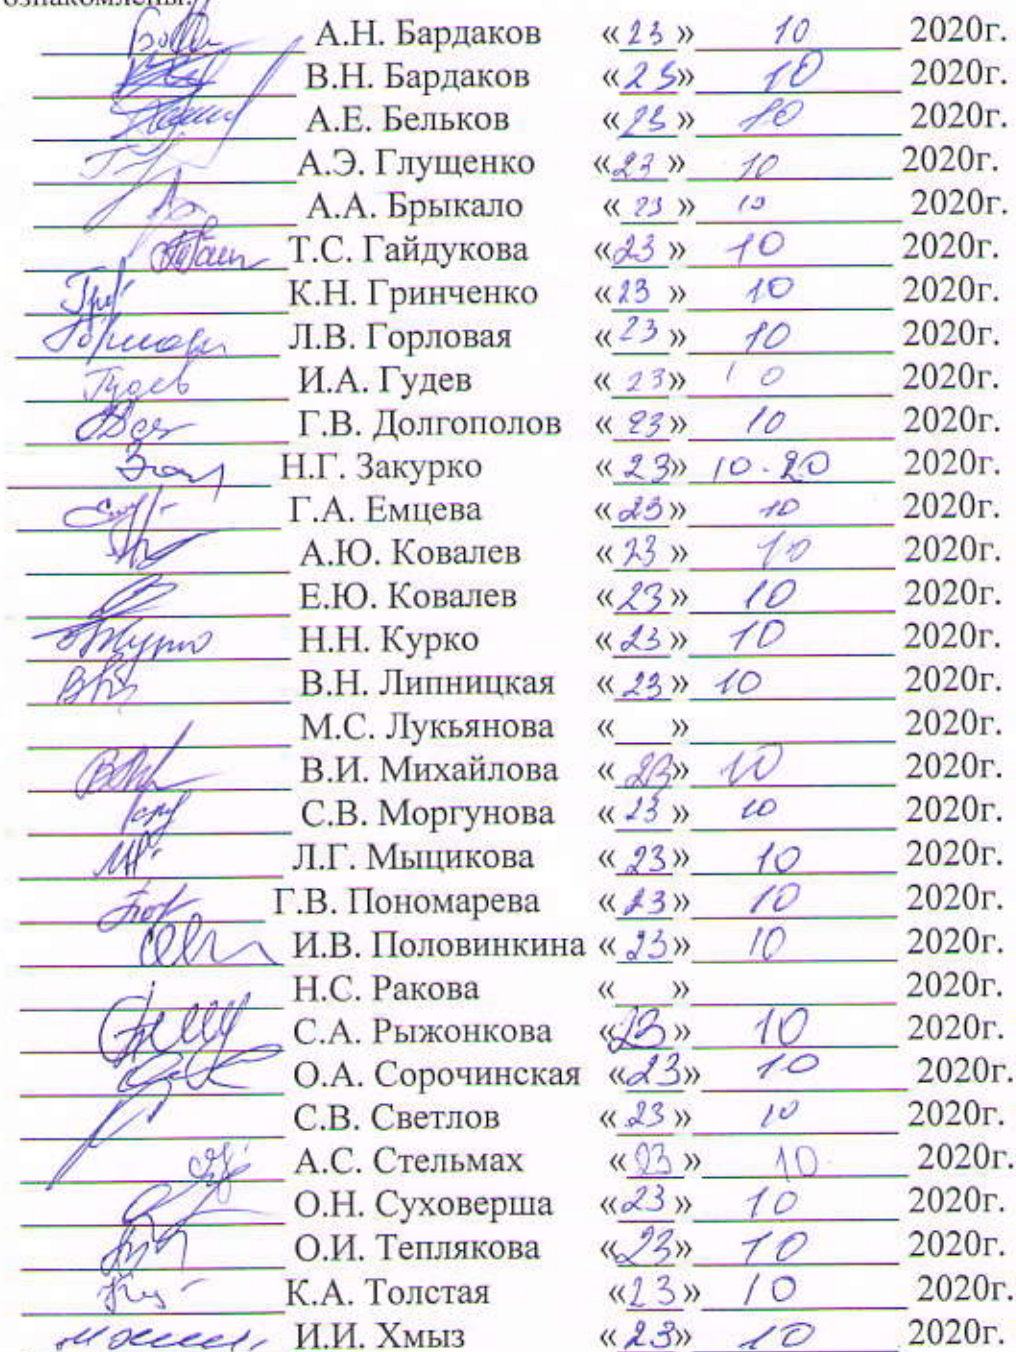 ознакомлены:
А.Н. Бардаков «23» 10 2020г.
В.Н. Бардаков «23» 10 2020г.
А.Е. Бельков «23» 10 2020г.
А.Э. Глущенко «23» 10 2020г.
А.А. Брыкало «23» 10 2020г.
Т.С. Гайдукова «23» 10 2020г.
К.Н. Гринченко «23» 10 2020г.
Л.В. Горловая «23» 10 2020г.
Гудев И.А. Гудев «23» 10 2020г.
Г.В. Долгополов «23» 10 2020г.
Н.Г. Закурко «23» 10.20 2020г.
Г.А. Емцева «23» 10 2020г.
А.Ю. Ковалев «23» 10 2020г.
Е.Ю. Ковалев «23» 10 2020г.
Н.Н. Курко «23» 10 2020г.
В.Н. Липницкая «23» 10 2020г.
М.С. Лукьянова «___» 2020г.
В.И. Михайлова «23» 10 2020г.
С.В. Моргунова «23» 10 2020г.
Л.Г. Мыцикова «23» 10 2020г.
Г.В. Пономарева «23» 10 2020г.
И.В. Половинкина «23» 10 2020г.
Н.С. Ракова «___» 2020г.
С.А. Рыжонкова «23» 10 2020г.
О.А. Сорочинская «23» 10 2020г.
С.В. Светлов «23» 10 2020г.
А.С. Стельмах «23» 10 2020г.
О.Н. Суховерша «23» 10 2020г.
О.И. Теплякова «23» 10 2020г.
К.А. Толстая «23» 10 2020г.
И.И. Хмыз «23» 10 2020г.